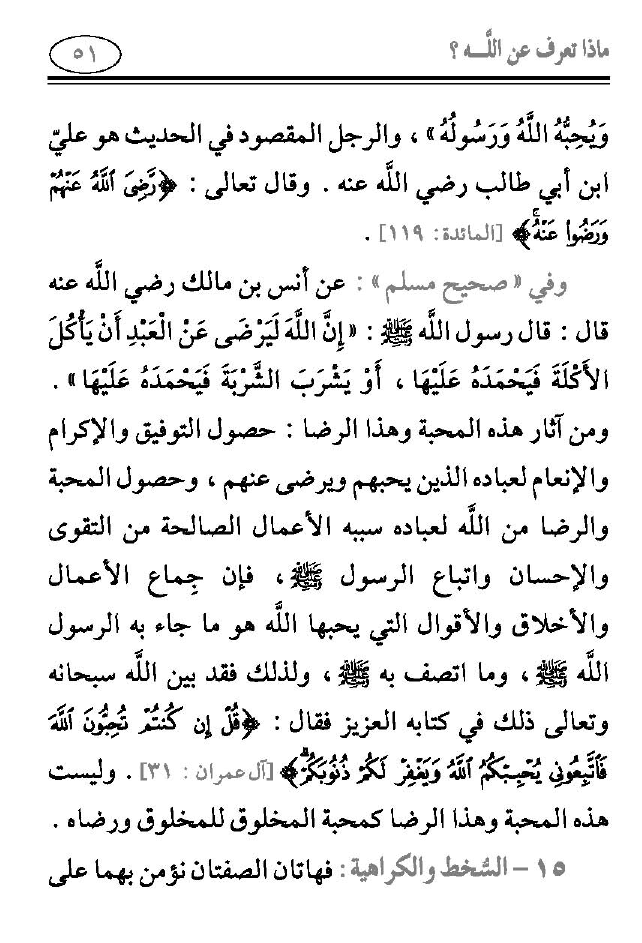 ماذا تعرف عن اللَّـــه ؟
٥١
وَيُحِبُّهُ اللَّهُ وَرَسُولُهُ» ، والرجل المقصود في الحديث هو عليّ
ابن أبي طالب رضي اللَّه عنه . وقال تعالى : ﴿رَّضِيَ ٱللَّهُ عَنْهُمْ
وَرَضُوا۟ عَنْهُ﴾ [المائدة: ١١٩] .
وفي «صحيح مسلم» : عن أنس بن مالك رضي اللَّه عنه
قال : قال رسول اللَّه ﷺ : «إِنَّ اللَّهَ لَيَرْضَى عَنْ الْعَبْدِ أَنْ يَأْكُلَ
الأَكْلَةَ فَيَحْمَدَهُ عَلَيْهَا ، أَوْ يَشْرَبَ الشَّرْبَةَ فَيَحْمَدَهُ عَلَيْهَا» .
ومن آثار هذه المحبة وهذا الرضا : حصول التوفيق والإكرام
والإنعام لعباده الذين يحبهم ويرضى عنهم ، وحصول المحبة
والرضا من اللَّه لعباده سببه الأعمال الصالحة من التقوى
والإحسان واتباع الرسول ﷺ ، فإن جِماع الأعمال
والأخلاق والأقوال التي يحبها اللَّه هو ما جاء به الرسول
اللَّه ﷺ ، وما اتصف به ﷺ ، ولذلك فقد بين اللَّه سبحانه
وتعالى ذلك في كتابه العزيز فقال : ﴿قُلْ إِن كُنتُمْ تُحِبُّونَ ٱللَّهَ
فَٱتَّبِعُونِى يُحْبِبْكُمُ ٱللَّهُ وَيَغْفِرْ لَكُمْ ذُنُوبَكُمْۗ﴾ [آل عمران : ٣١] . وليست
هذه المحبة وهذا الرضا كمحبة المخلوق للمخلوق ورضاه .
١٥ – السُّخط والكراهية : فهاتان الصفتان نؤمن بهما على